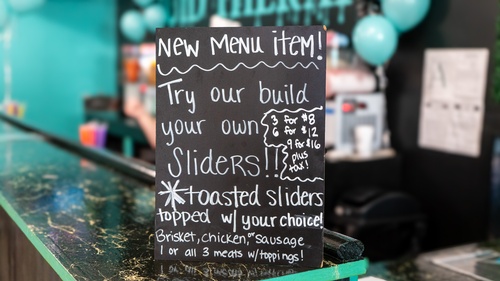 New Menu item!
Try our build
your own
Sliders!!
3 for $8
6 for $12
9 for $16
plus
tax!
*toasted sliders
topped w/ your choice!
Brisket, chicken, or sausage
1 or all 3 meats w/toppings!